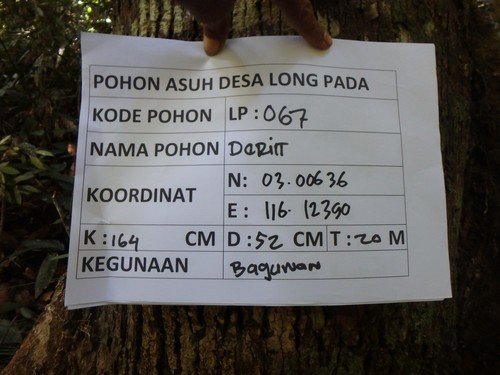 POHON ASUH DESA LONG PADA
KODE POHON LP : 067
NAMA POHON Daritt
KOORDINAT
N: 03.00636
E : 116.12390
K : 164 CM D : 52 CM T : 20 M
KEGUNAAN Bagunan